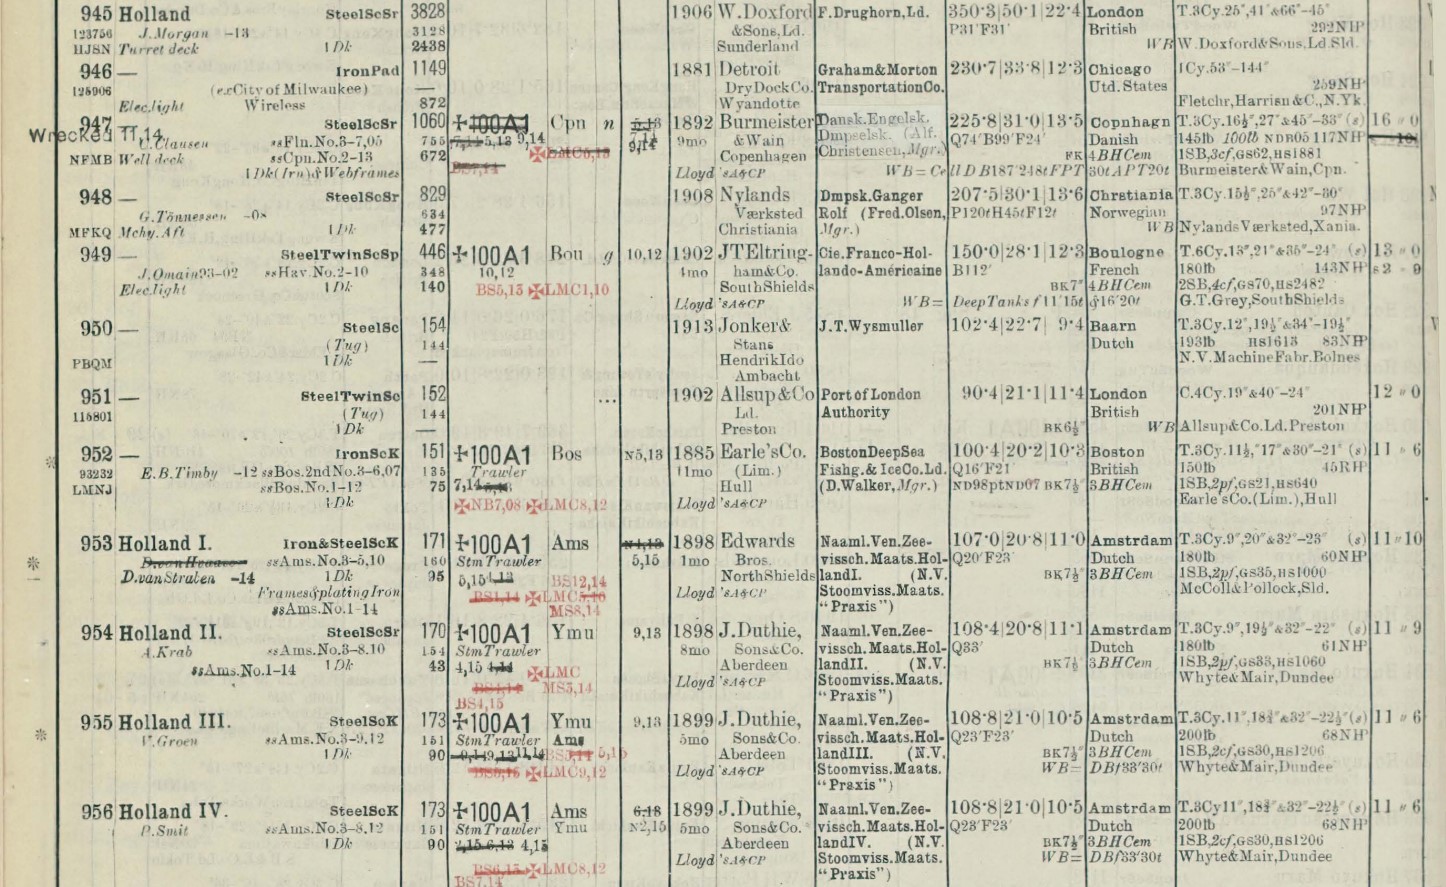 945 Holland SteelScSr 3828 1906 W.Doxford F.Drughorn,Ld. 350·3|50·1|22·4 London T.3Cy.25",41"&66"-45"
123756 J.Morgan -13 3128 &Sons,Ld. P31'F31' British 292NHP
HJSN Turret deck 1Dk 2438 Sunderland WB W.Doxford&Sons,Ld.Sld.
946 — IronPad 1149 1881 Detroit Graham&Morton 230·7|33·8|12·3 Chicago 1Cy.53"-144"
125906 (exCity of Milwaukee) — DryDockCo. TransportationCo. Utd.States 259NHP
Elec.light Wireless 872 Wyandotte Fletchr,Harrisn&C.,N.Yk.
947 SteelScSr 1060 ✠100A1 Cpn n 5,13 1892 Burmeister Dansk.Engelsk. 225·8|31·0|13·5 Copnhagn T.3Cy.16½",27"&45"-33" (s) 16 " 0
Wrecked 11,14
C.Clausen ssFln.No.3-7,05 755 5,13 9,14 7,14 9mo &Wain Dmpselsk. (Alf. Q74'B99'F24' Danish 145lb 100lb NDB05 117NHP
NFMB Well deck ssCpn.No.2-13 672 ✠LMC5,13 9,14 Copenhagen Christensen,Mgr.) FK 4BHCem 1SB,3cf,GS62,HS1881
1Dk(Irn)&Webframes BS7,14 Lloyd'sA&CP WB=CellDB187'248tFPT 30tAPT20t Burmeister&Wain,Cpn.
948 — SteelScSr 829 1908 Nylands Dmpsk.Ganger 207·5|30·1|13·6 Chrstiania T.3Cy.15½",25"&42"-30"
G.Tönnessen -08 634 Værksted Rolf (Fred.Olsen, P120tH45tF12t Norwegian 97NHP
MFKQ Mchy.Aft 1Dk 477 Christiania Mgr.) WB NylandsVærksted,Xania.
949 — SteelTwinScSp 446 ✠100A1 Bou g 10,12 1902 JTEltring- Cie.Franco-Hol- 150·0|28·1|12·3 Boulogne T.6Cy.13",21"&35"-24" (s) 13 " 0
J.Omain93-02 ssHav.No.2-10 348 10,12 4mo ham&Co. lando-Américaine B112' French 180lb 143NHP s2 " 9
Elec.light 1Dk 140 BS5,13 ✠LMC1,10 SouthShields BK7" 4BHCem 2SB,4cf,GS70,HS2482
Lloyd'sA&CP WB= DeepTanksf11'15t &16'20t G.T.Grey,SouthShields
950 — SteelSc 154 1913 Jonker& J.T.Wysmuller 102·4|22·7| 9·4 Baarn T.3Cy.12",19½"&34"-19½"
(Tug) 144 Stans Dutch 193lb HS1613 83NHP
PBQM 1Dk — HendrikIdo N.V.MachineFabr.Bolnes
Ambacht
951 — SteelTwinSc 152 ... 1902 Allsup&Co Port of London 90·4|21·1|11·4 London C.4Cy.19"&40"-24" 12 " 0
115801 (Tug) 144 Ld. Authority British 201NHP
1Dk — Preston BK6½" WB Allsup&Co.Ld.Preston
952 — IronScK 151 ✠100A1 Bos N5,13 1885 Earle'sCo. BostonDeepSea 100·4|20·2|10·3 Boston T.3Cy.11½,"17"&30"-21" (s) 11 " 6
93232 E.B.Timby -12 ssBos.2ndNo.3-6,07 135 Trawler 11mo (Lim.) Fishg.& IceCo.Ld. Q16'F21' British 150lb 45RHP
LMNJ ssBos.No.1-12 75 7,14 Hull (D.Walker,Mgr.) ND98ptND07 BK7½" 3BHCem 1SB,2pf,GS21,HS640
1Dk ✠NB7,08 ✠LMC8,12 Lloyd'sA&CP Earle'sCo.(Lim.),Hull
953 Holland I. Iron&SteelScK 171 ✠100A1 Ams N4,13 1898 Edwards Naaml.Ven.Zee- 107·0|20·8|11·0 Amstrdam T.3Cy.9",20"&32"-23" (s) 11 " 10
ssAms.No.3-5,10 160 StmTrawler 5,15 1mo Bros. vissch.Maats.Hol- Q20'F23' Dutch 180lb 60NHP
D.vanStraten -14 1Dk 95 5,15 4,13 BS12,14 NorthShields landI. (N.V. BK7½" 3BHCem 1SB,2pf,GS35,HS1000
Frames&platingIron BS4,14 ✠LMC5,10 Lloyd'sA&CP Stoomviss.Maats. McColl&Pollock,Sld.
ssAms.No.1-14 MS8,14 "Praxis")
954 Holland II. SteelScSr 170 ✠100A1 Ymu 9,13 1898 J.Duthie, Naaml.Ven.Zee- 108·4|20·8|11·1 Amstrdam T.3Cy.9",19½"&32"-22" (s) 11 " 9
A.Krab ssAms.No.3-8.10 154 StmTrawler 8mo Sons&Co. vissch.Maats.Hol- Q33' Dutch 180lb 61NHP
ssAms.No.1-14 1Dk 43 4,15 4,14 ✠LMC Aberdeen landII. (N.V. BK7½" 3BHCem 1SB,2pf,GS33,HS1060
BS4,14 MS5,14 Lloyd'sA&CP Stoomviss.Maats. Whyte&Mair,Dundee
BS4,15 "Praxis")
955 Holland III. SteelScK 173 ✠100A1 Ymu 9,13 1899 J.Duthie, Naaml.Ven.Zee- 108·8|21·0|10·5 Amstrdam T.3Cy.11",18¾"&32"-22½"(s) 11 " 6
V.Groen ssAms.No.3-9.12 151 StmTrawler Ams 5mo Sons&Co. vissch.Maats.Hol- Q23'F23' Dutch 200lb 68NHP
1Dk 90 11,14 5,15 Aberdeen landIII. (N.V. BK7½" 3BHCem 1SB,2cf,GS30,HS1206
✠LMC9,12 Lloyd'sA&CP Stoomviss.Maats. WB= DBf33'30t Whyte&Mair,Dundee
"Praxis")
956 Holland IV. SteelScK 173 ✠100A1 Ams 6,13 1899 J.Duthie, Naaml.Ven.Zee- 108·8|21·0|10·5 Amstrdam T.3Cy11",18¾"&32"-22½"(s) 11 " 6
P.Smit ssAms.No.3-8.12 151 StmTrawler Ymu N2,15 5mo Sons&Co. vissch.Maats.Hol- Q23'F23' Dutch 200lb 68NHP
1Dk 90 2,15 6,13 4,15 Aberdeen landIV. (N.V. BK7½" 3BHCem 1SB,2cf,GS30,HS1206
BS6,13 ✠LMC8,12 Lloyd'sA&CP Stoomviss.Maats. WB= DBf33'30t Whyte&Mair,Dundee
BS7,14 "Praxis")